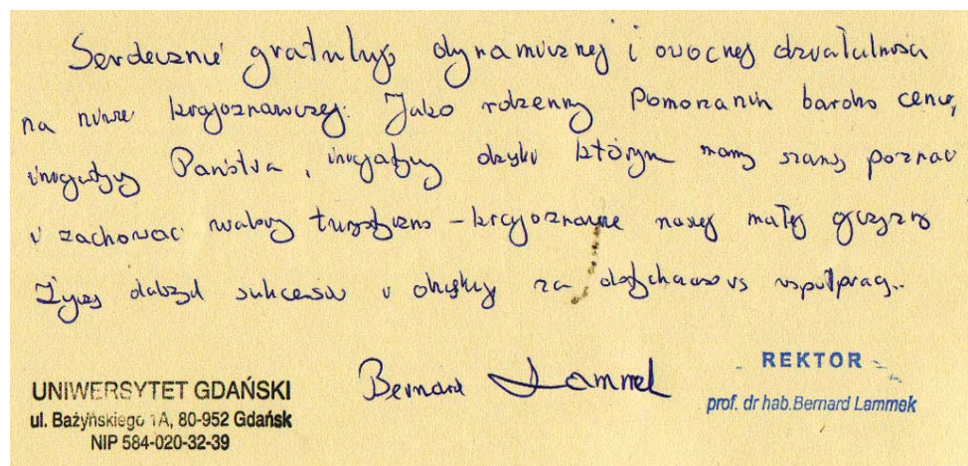 Serdecznie gratuluję dynamicznej i owocnej działalności
na niwie krajoznawczej. Jako rodzenny Pomorzanin bardzo cenię
inicjatywy Państwa, inicjatywy dzięki którym mamy szansę poznać
i zachować walory turystyczno-krajoznawcze naszej małej ojczyzny
Życzę dalszych sukcesów i dziękuję za dotychczasową współpracę.
Bernard Lammek
REKTOR
prof. dr hab. Bernard Lammek
UNIWERSYTET GDAŃSKI
ul. Bażyńskiego 1A, 80-952 Gdańsk
NIP 584-020-32-39